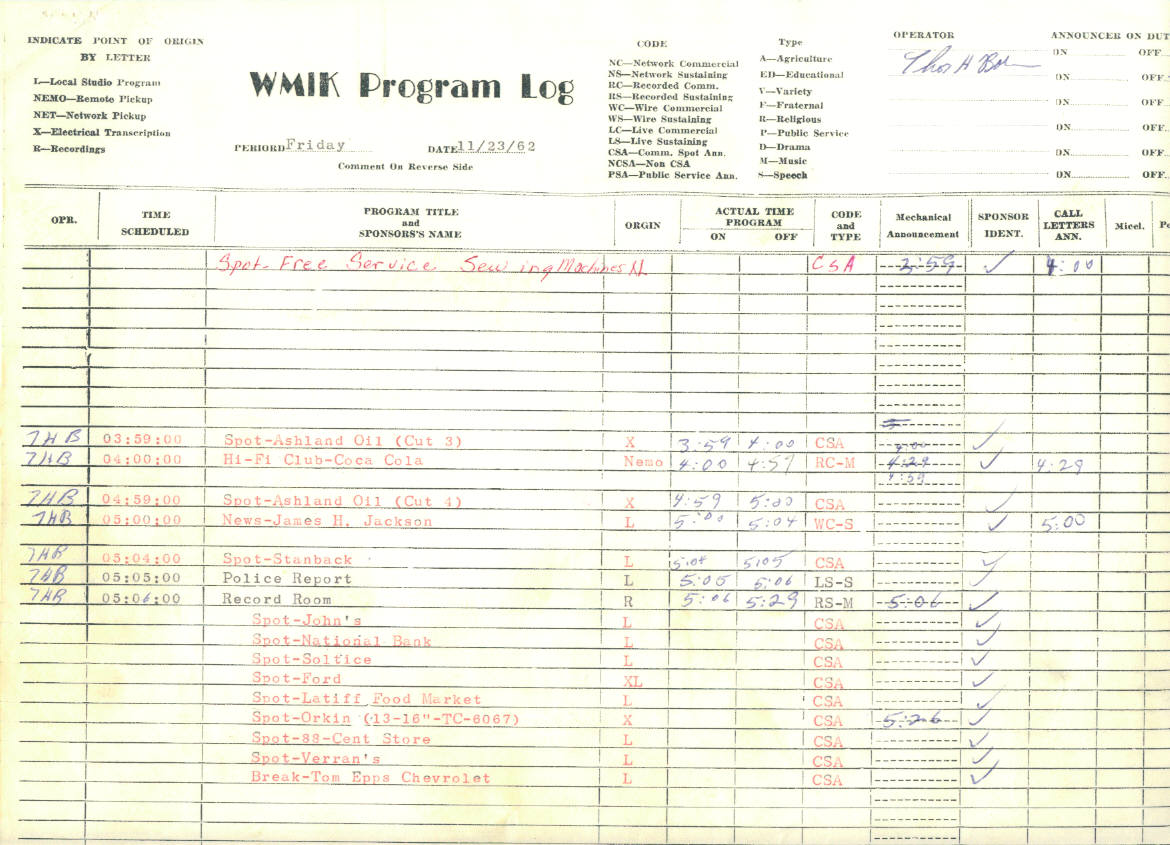 INDICATE POINT OF ORIGIN
BY LETTER
L—Local Studio Program
NEMO—Remote Pickup
NET—Network Pickup
X—Electrical Transcription
R—Recordings
WMIK Program Log
PERIORD Friday DATE 11/23/62
Comment On Reverse Side
CODE
NC—Network Commercial
NS—Network Sustaining
RC—Recorded Comm.
RS—Recorded Sustaining
WC—Wire Commercial
WS—Wire Sustaining
LC—Live Commercial
LS—Live Sustaining
CSA—Comm. Spot Ann.
NCSA—Non CSA
PSA—Public Service Ann.
Type
A—Agriculture
ED—Educational
V—Variety
F—Fraternal
R—Religious
P—Public Service
D—Drama
M—Music
S—Speech
OPERATOR
ANNOUNCER ON DUT
ON OFF
ON OFF
ON OFF
ON OFF
ON OFF
ON OFF
OPR. TIME SCHEDULED PROGRAM TITLE and SPONSORS'S NAME ORGIN ACTUAL TIME PROGRAM ON OFF CODE and TYPE Mechanical Announcement SPONSOR IDENT. CALL LETTERS ANN. Micel. Pe
Spot- Free Service Sewing Machines XL CSA 3:59 ✓ 4:00
THB 03:59:00 Spot-Ashland Oil (Cut 3) X 3:59 4:00 CSA ✓
4:00
THB 04:00:00 Hi-Fi Club-Coca Cola Nemo 4:00 4:59 RC-M 4:29 ✓ 4:29
4:59
THB 04:59:00 Spot-Ashland Oil (Cut 4) X 4:59 5:00 CSA ✓
THB 05:00:00 News-James H. Jackson L 5:00 5:04 WC-S ✓ 5:00
THB 05:04:00 Spot-Stanback L 5:04 5:05 CSA ✓
THB 05:05:00 Police Report L 5:05 5:06 LS-S
THB 05:06:00 Record Room R 5:06 5:29 RS-M 5:06 ✓
Spot-John's L CSA ✓
Spot-National Bank L CSA ✓
Spot-Soltice L CSA ✓
Spot-Ford XL CSA ✓
Spot-Latiff Food Market L CSA ✓
Spot-Orkin (13-16"-TC-6067) X CSA 5:26 ✓
Spot-88-Cent Store L CSA ✓
Spot-Verran's L CSA ✓
Break-Tom Epps Chevrolet L CSA ✓